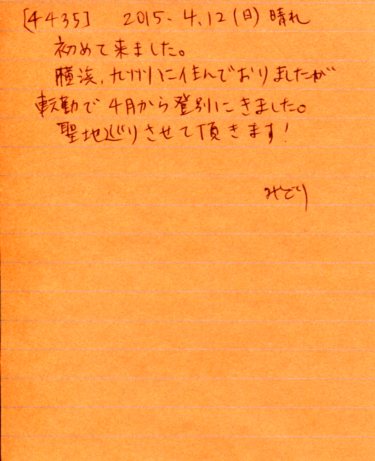 [4435] 2015.4.12(日)晴れ
初めて来ました。
横浜、九州に住んでおりましたが
転勤で4月から登別にきました。
聖地巡りさせて頂きます!
みどり